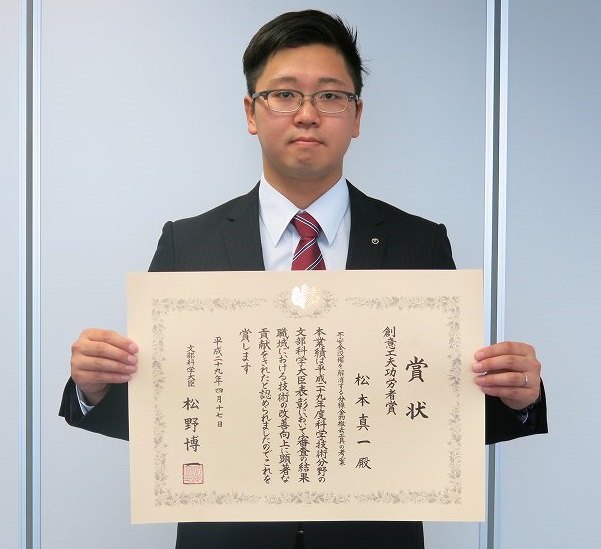 賞状
創意工夫功労者賞
松本真一殿
本業績は平成二十九年度科学技術分野の
文部科学大臣表彰において審査の結果
職域における技術の改善向上に顕著な
貢献をされたと認められましたのでこれを
賞します
平成二十九年四月十七日
文部科学大臣
松野博一